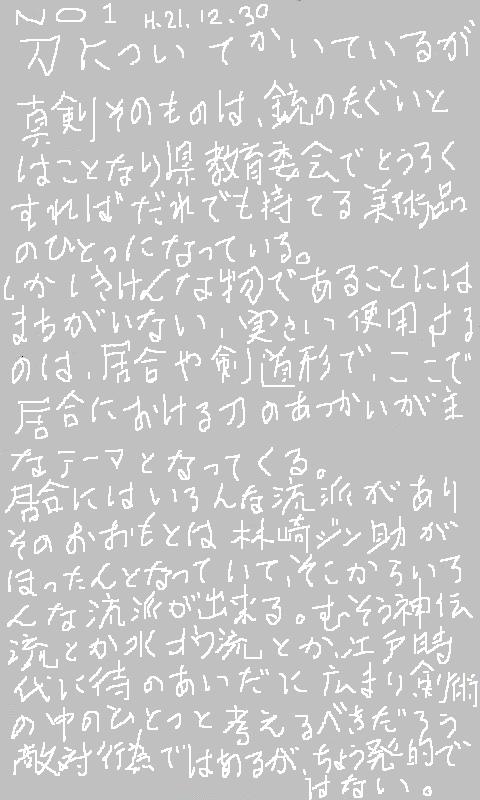 NO1 H.21.12.30
刀についてかいているが
真剣そのものは、銃のたぐいと
はことなり県教育委会でとうろく
すればだれでも持てる美術品
のひとつになっている。
しかしきけんな物であることには
まちがいない、実さいつ使用する
のは、居合や剣道形で、ここで
居合における刀のあつかいが主
なテーマとなってくる。
居合にはいろんな流派があり
そのおおもとは林崎ジン助が
ほったんとなっていて、そこからいろ
んな流派が出来る。むそう神伝
流とか水オウ流とか、江戸時
代に侍のあいだに広まり剣術
の中のひとつと考えるべきだろう
敵対行為ではあるが、ちょう発的で
はない。